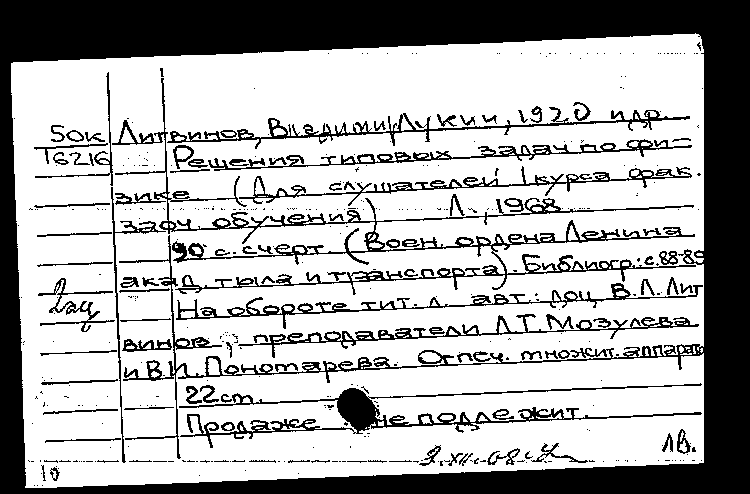 50к Литвинов, Владимир Лукич, 1920 и др.
16216 Решения типовых задач по фи-
зике (Для слушателей I курса фак.
заоч. обучения) Л., 1968
90 с. с черт (Воен. ордена Ленина
акад. тыла и транспорта). Библиогр.: с. 88-89
2 экз На обороте тит. л. авт.: доц. В.Л. Лит
винов, преподаватели Л.Т. Мозулева
и В.И. Пономарева. Отпеч. множит. аппарато
22 см.
Продаже не подлежит.
ЛВ.
10